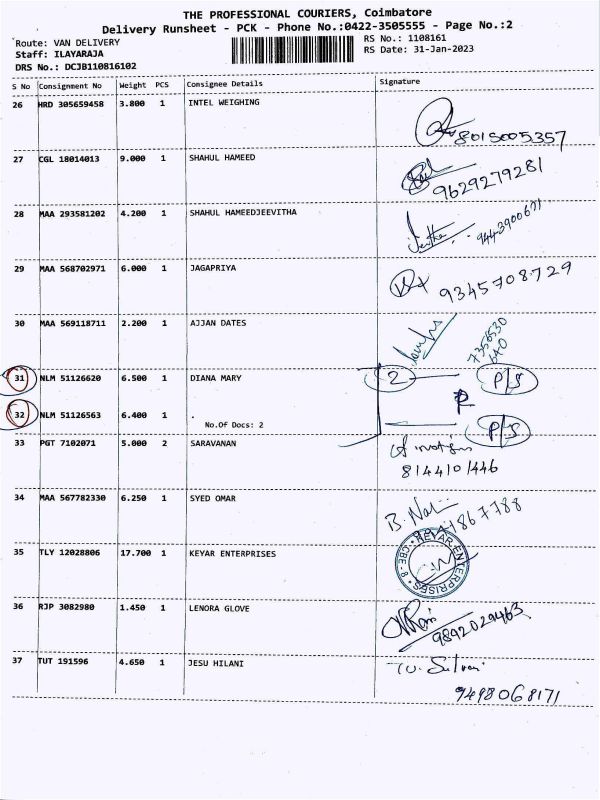 THE PROFESSIONAL COURIERS, Coimbatore
Delivery Runsheet - PCK - Phone No.:0422-3505555 - Page No.:2
Route: VAN DELIVERY
RS No.: 1108161
Staff: ILAYARAJA
RS Date: 31-Jan-2023
DRS No.: DCJB110816102
S No Consignment No Weight PCS Consignee Details Signature
26 HRD 305659458 3.800 1 INTEL WEIGHING
8015005357
27 CGL 18014013 9.000 1 SHAHUL HAMEED
9629279281
28 MAA 293581202 4.200 1 SHAHUL HAMEEDJEEVITHA
9443900671
29 MAA 568702971 6.000 1 JAGAPRIYA
9345708729
30 MAA 569118711 2.200 1 AJJAN DATES
31 NLM 51126620 6.500 1 DIANA MARY 2 P/S
32 NLM 51126563 6.400 1 . P/S
No.Of Docs: 2
33 PGT 7102071 5.000 2 SARAVANAN
8144101446
34 MAA 567782330 6.250 1 SYED OMAR
35 TLY 12028806 17.700 1 KEYAR ENTERPRISES
KEYAR ENTERPRISES
CBE - 8
36 RJP 3082980 1.450 1 LENORA GLOVE
9892029463
37 TUT 191596 4.650 1 JESU HILANI
9498068171